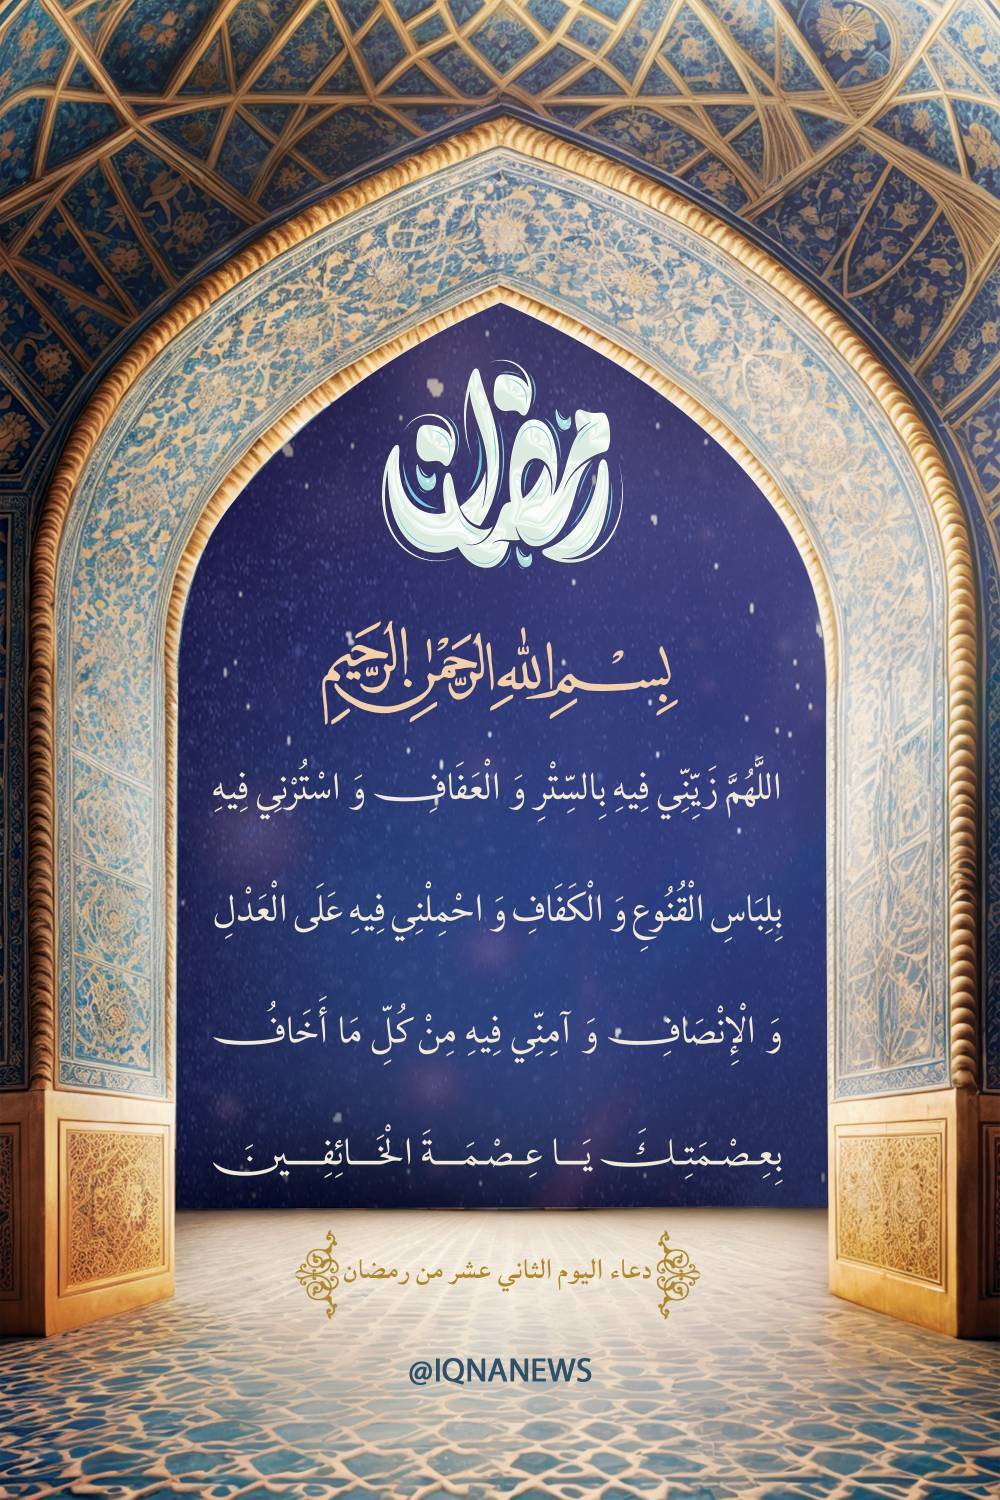 رمضان
بِسْمِ اللهِ الرَّحْمٰنِ الرَّحِيمِ
اللَّهُمَّ زَيِّنِّي فِيهِ بِالسِّتْرِ وَ الْعَفَافِ وَ اسْتُرْنِي فِيهِ
بِلِبَاسِ الْقُنُوعِ وَ الْكَفَافِ وَ احْمِلْنِي فِيهِ عَلَى الْعَدْلِ
وَ الْإِنْصَافِ وَ آمِنِّي فِيهِ مِنْ كُلِّ مَا أَخَافُ
بِعِصْمَتِكَ يَا عِصْمَةَ الْخَائِفِينَ
دعاء اليوم الثاني عشر من رمضان
@IQNANEWS